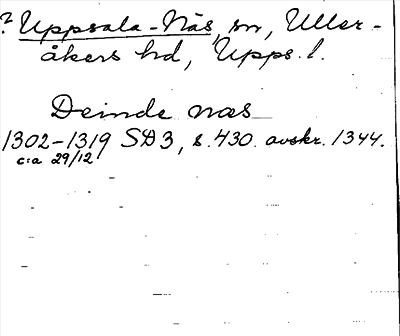 ? Uppsala-Näs, sn, Uller-
åkers hd, Upps. l.
Deinde næs
1302-1319 SD 3, s. 430. avskr. 1344.
c:a 29/12